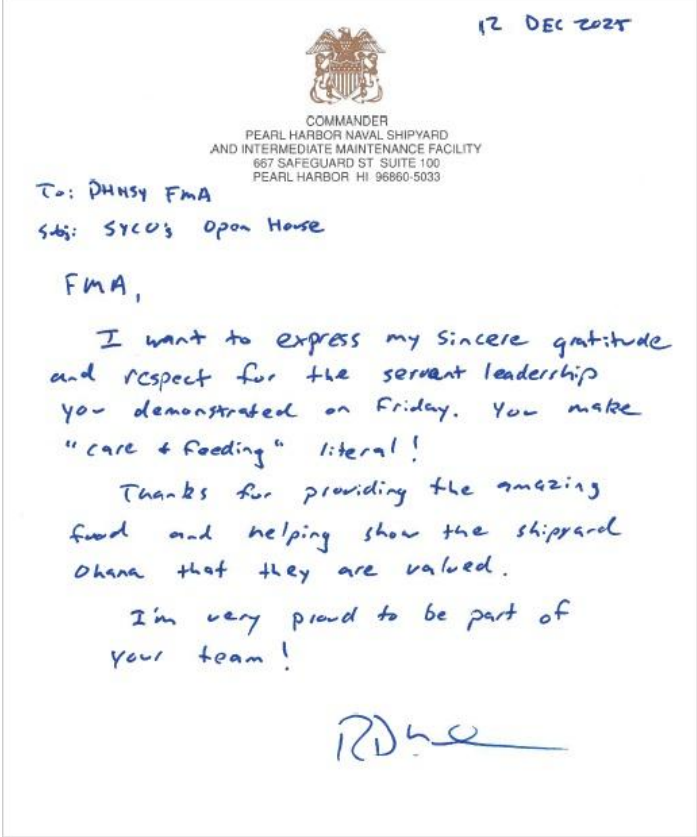 12 DEC 2025
COMMANDER
PEARL HARBOR NAVAL SHIPYARD
AND INTERMEDIATE MAINTENANCE FACILITY
667 SAFEGUARD ST SUITE 100
PEARL HARBOR HI 96860-5033
To: PHNSY FMA
Subj: SYCO's Open House
FMA,
I want to express my sincere gratitude
and respect for the servant leadership
you demonstrated on Friday. You make
"care & feeding" literal!
Thanks for providing the amazing
food and helping show the shipyard
Ohana that they are valued.
I'm very proud to be part of
your team!